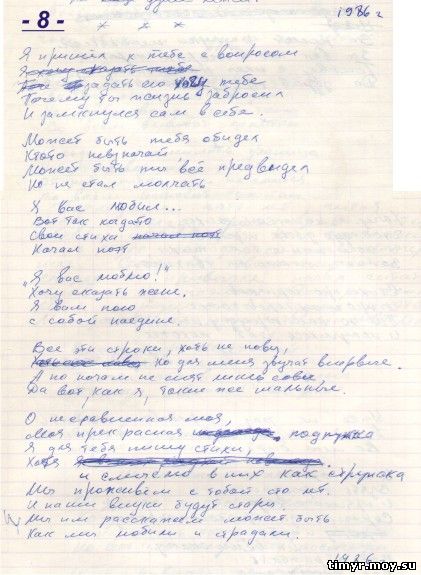 - 8 -
* * *
1986 г
Я пришёл к тебе с вопросом
Я хочу сказать тебе
задать его хочу тебе
Почему ты жизнь забросил
И замкнулся сам в себе.
Может быть тебя обидел
Ктото невзначай
Может быть ты всё предвидел
Но не стал молчать
Я Вас любил...
Вот так когдато
Свои стиха начал поэт
Начал поэт
"Я вас люблю!"
Хочу сказать жене.
Я вам пою
с собой наедине.
Все эти строки, хоть не новы,
Но для меня звучат впервые.
А по ночам не спят лишь совы,
Да вот как я, такие же шальные.
О несравненная моя,
Моя прекрасная подружка
Я для тебя пишу стихи,
Хотя я
и смысла в них как стружка
Мы проживём с тобой сто лет.
И наши внуки будут стары.
Мы им расскажем может быть
Как мы любили и страдали.
1986
timyr.moy.su